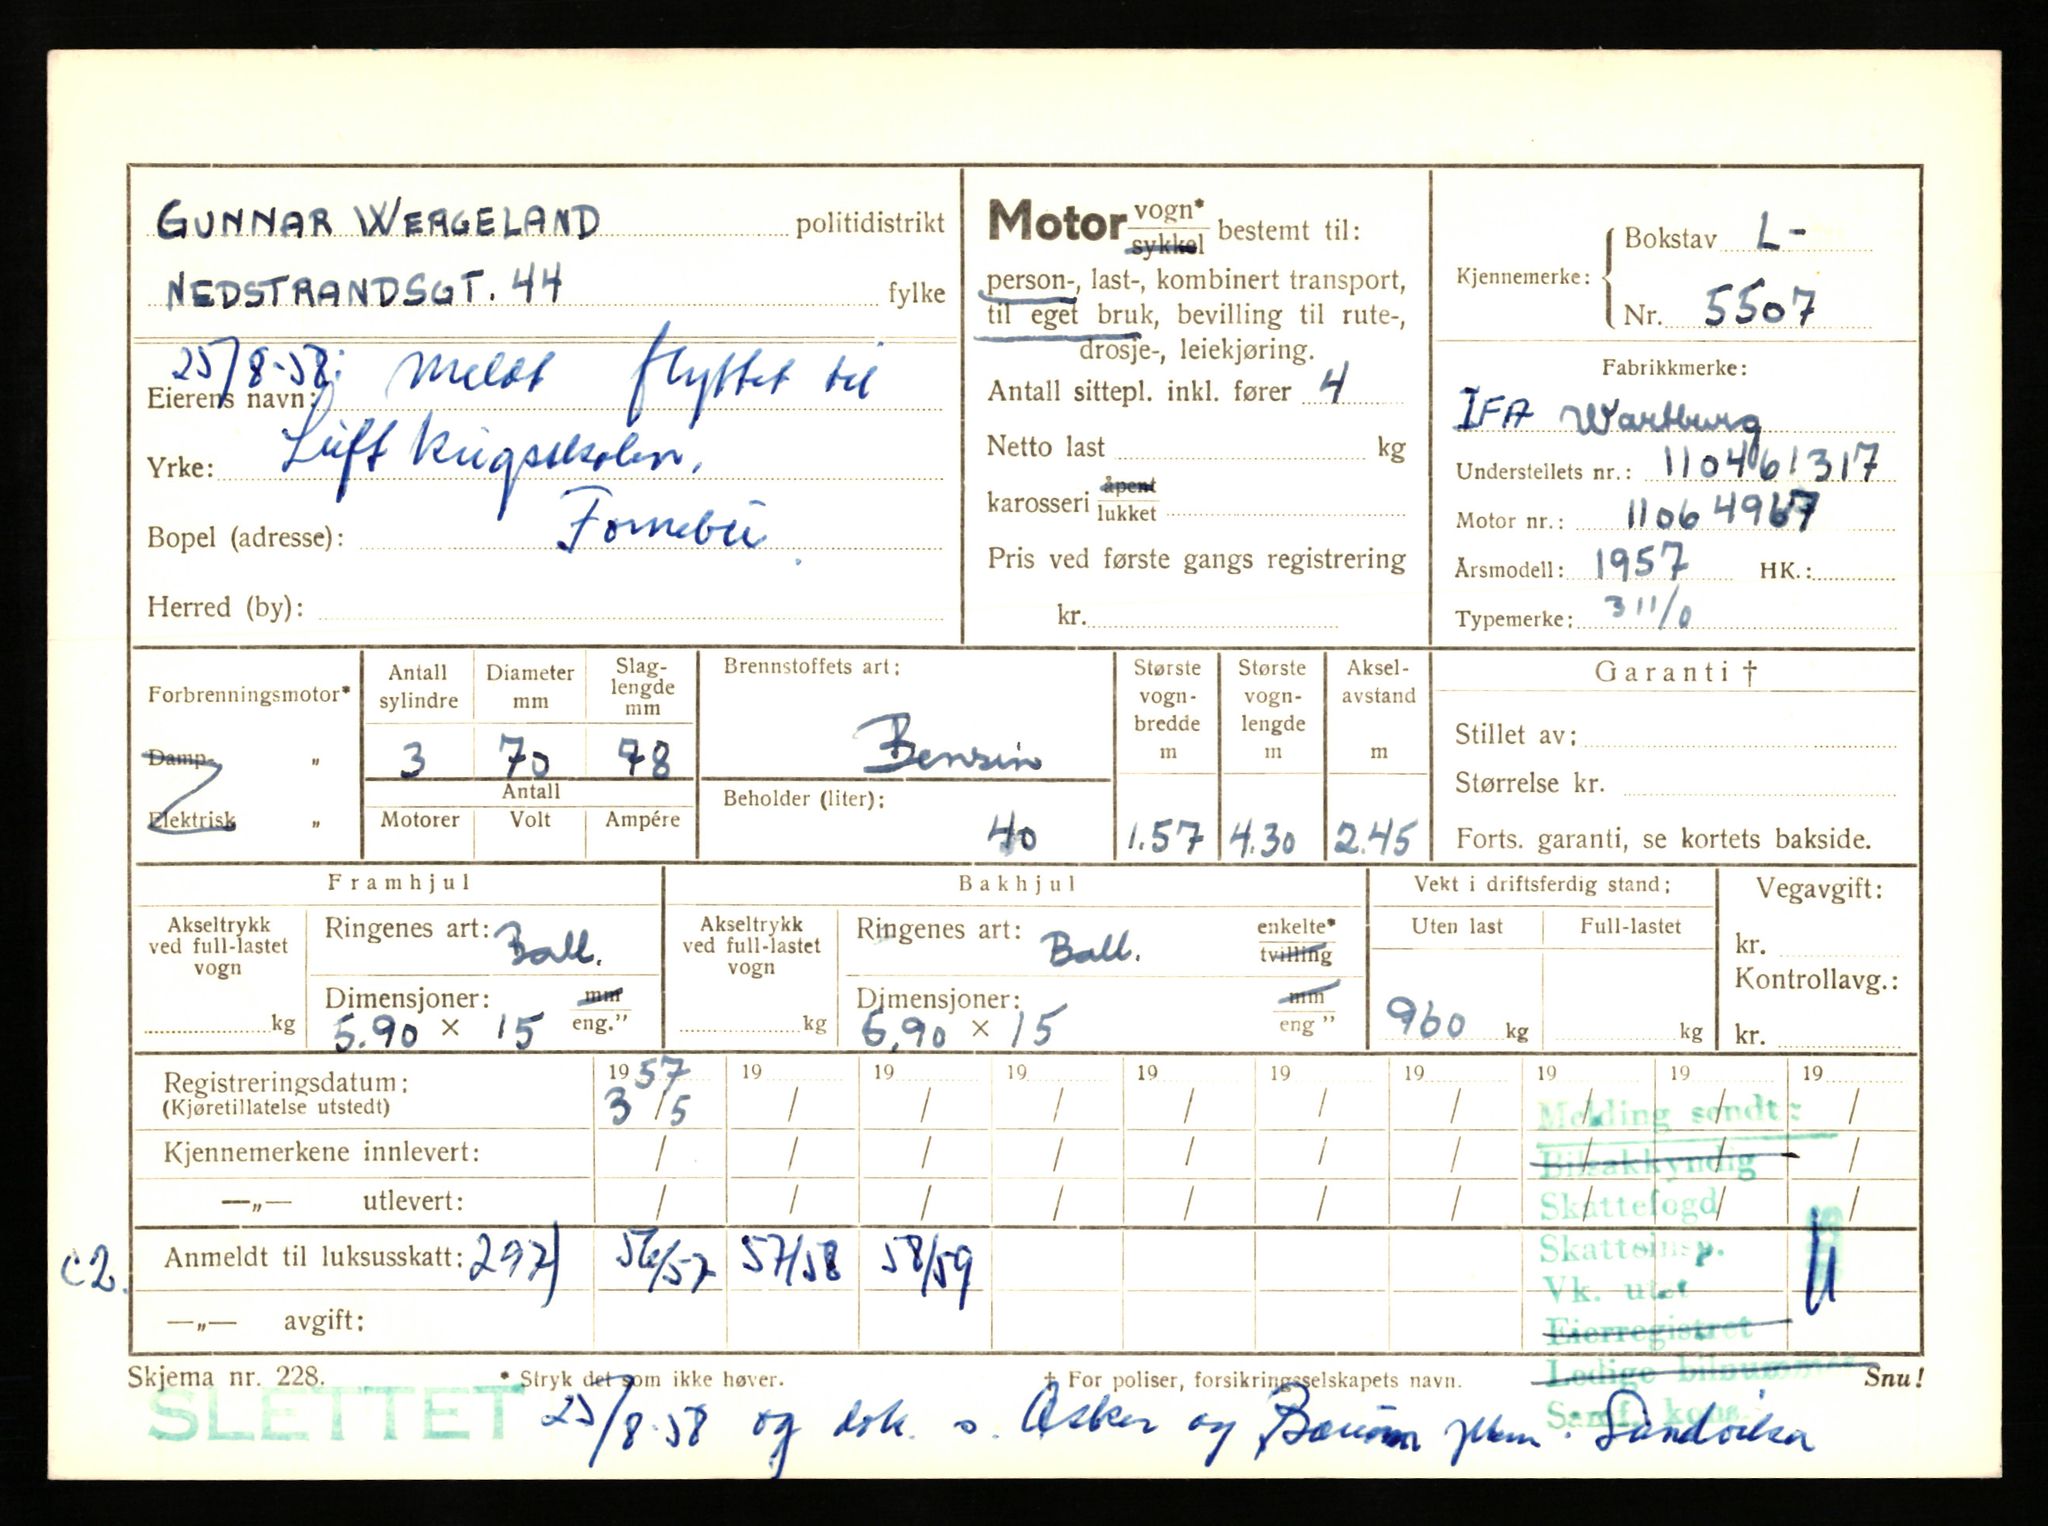 GUNNAR WERGELAND politidistrikt
NEDSTRANDSGT. 44 fylke
25/8-58: Meldt flyttet til
Eierens navn:
Luftkrigsskolen,
Yrke:
Bopel (adresse): Fornebu.
Herred (by):
Motor vogn* sykkel bestemt til:
person-, last-, kombinert transport,
til eget bruk, bevilling til rute-,
drosje-, leiekjøring.
Antall sittepl. inkl. fører 4
Netto last kg
karosseri åpent lukket
Pris ved første gangs registrering
kr.
Kjennemerke: Bokstav L-
Nr. 5507
Fabrikkmerke:
IFA Wartburg
Understellets nr.: 110461317
Motor nr.: 11064967
Årsmodell: 1957 HK.:
Typemerke: 311/0
Forbrenningsmotor*
Damp- „
Elektrisk „
Antall sylindre Diameter mm Slag-lengde mm
3 70 78
Antall
Motorer Volt Ampére
Brennstoffets art:
Bensin
Beholder (liter):
40
Største vogn-bredde m
1.57
Største vogn-lengde m
4.30
Aksel-avstand m
2.45
Garanti †
Stillet av:
Størrelse kr.
Forts. garanti, se kortets bakside.
Framhjul
Akseltrykk ved full-lastet vogn
kg
Ringenes art: Ball.
Dimensjoner: mm
5.90 × 15 eng.”
Bakhjul
Akseltrykk ved full-lastet vogn
kg
Ringenes art: Ball. enkelte* tvilling
Dimensjoner: mm
5,90 × 15 eng ”
Vekt i driftsferdig stand:
Uten last Full-lastet
960 kg kg
Vegavgift:
kr.
Kontrollavg.:
kr.
Registreringsdatum: 19 57 19 19 19 19 19 19 19 19 19
(Kjøretillatelse utstedt) 3/5 / / / / / / / / /
Kjennemerkene innlevert: / / / / / / / / / /
—„— utlevert: / / / / / / / / / /
c2. Anmeldt til luksusskatt: 297) 56/57 57/58 58/59
—„— avgift:
Melding sendt:
Bilsakkyndig
Skattefogd
Skatteinsp.
Vk. utst
Eierregistret
Ledige bilnummer
Samf. kons.
Skjema nr. 228. * Stryk det som ikke høver. † For poliser, forsikringsselskapets navn. Snu!
SLETTET 25/8-58 og dok. s. Asker og Bærum pkm. Sandvika